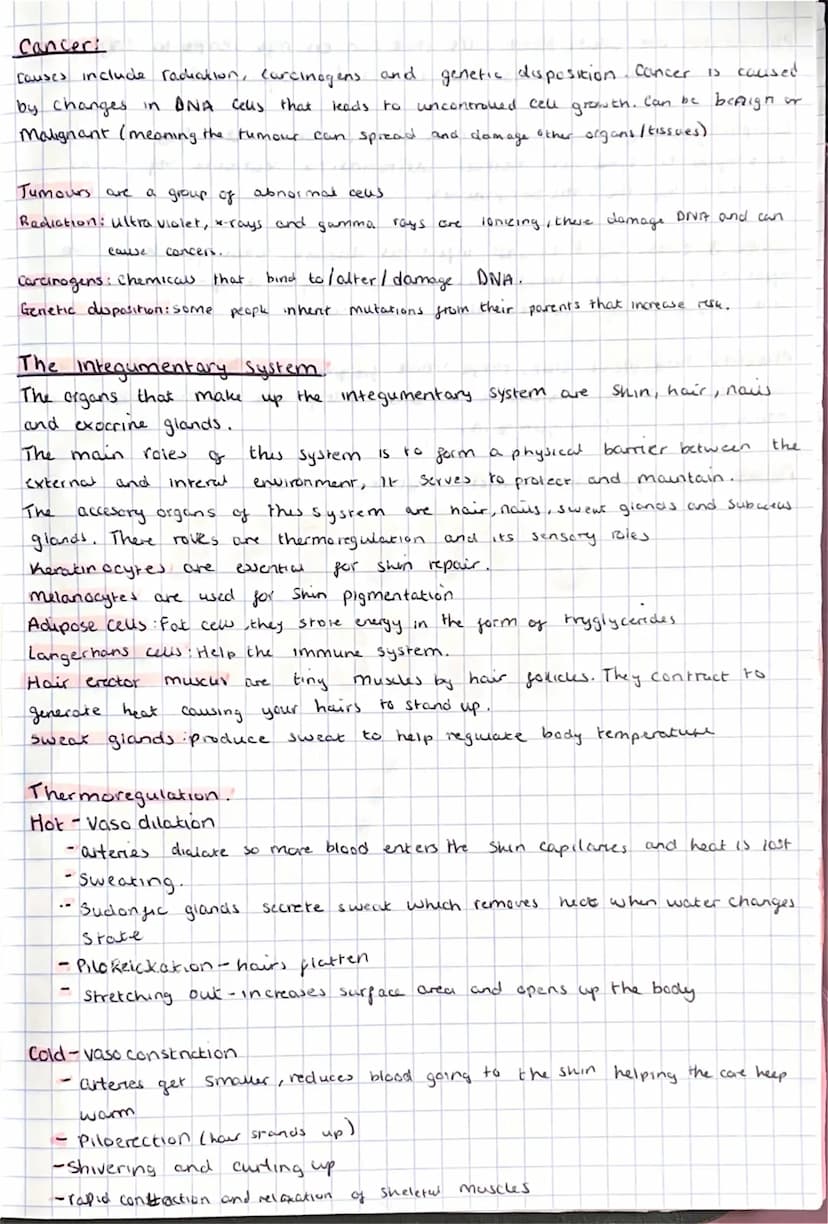 Cancer:
Causes include radiation, carcinogens and genetic disposition. Cancer is caused
by changes in DNA cells that leads to uncontrolled cell growth. Can be benign or
Malignant (meaning the tumour can spread and damage other organs/tissues)
Tumours are a group of abnormal cells
Radiation: ultra violet, x-rays and gamma rays are ionizing, these damage DNA and can
cause cancers.
Carcinogens: chemicals that bind to/alter/damage DNA.
Genetic disposition: some people inherit mutations from their parents that increase risk.
The Integumentary System
The organs that make up the integumentary system are skin, hair, nails
and exocrine glands.
The main roles of this system is to form a physical barrier between the
external and interal environment, It serves to protect and maintain.
The accesory organs of this system are hair, nails, sweat glands and subaceus
glands. There roles are thermoregulation and its sensory roles
Keratinocytes are essential for skin repair.
Melanocytes are used for skin pigmentation
Adipose cells: Fat cells, they store energy in the form of tryglycerides
Langerhans cells: Help the immune system.
Hair erector muscles are tiny muscles by hair folicles. They contract to
generate heat causing your hairs to stand up.
Sweat glands: produce sweat to help regulate body temperature
Thermoregulation.
Hot - Vaso dilation
- arteries dialate so more blood enters the skin capilaries and heat is lost
- Sweating.
- glands secrete sweat which removes heat when water changes
state
- hairs flatten
- Stretching out - increases surface area and opens up the body
Cold - vaso constriction
- arteries get smaller, reduces blood going to the skin helping the core keep
warm
- Piloerection (hair stands up)
- Shivering and curling up
- rapid contraction and relaxation of skeletal muscles